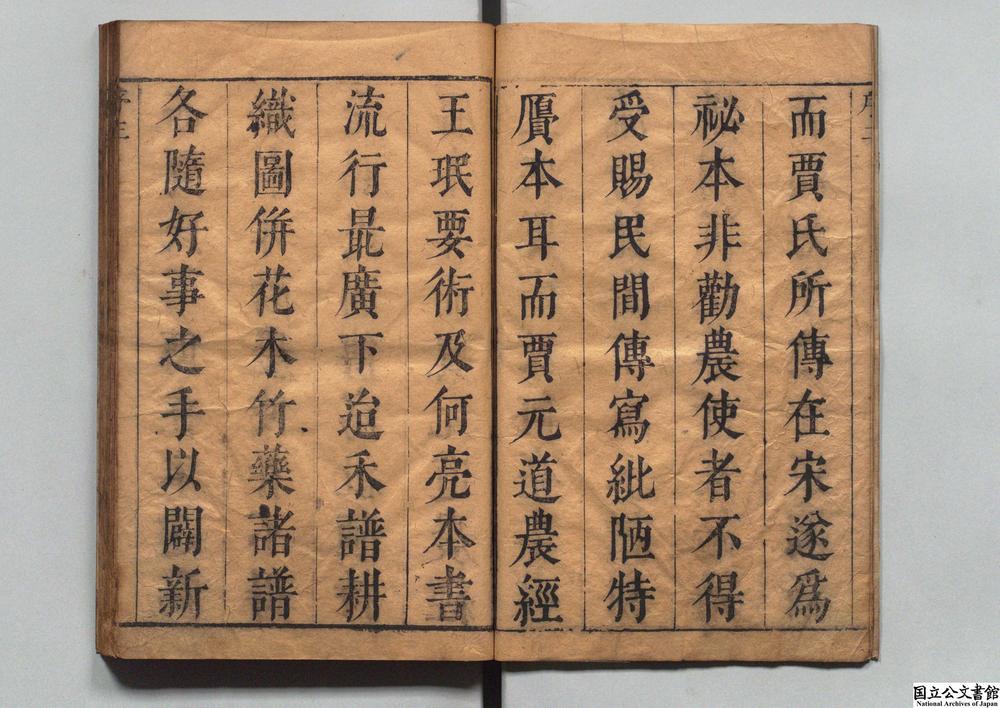 而賈氏所傳在宋遂爲
祕本非勸農使者不得
受賜民間傳寫紕陋特
贗本耳而賈元道農經
王珉要術及何亮本書
流行最廣下迨禾譜耕
織圖併花木竹藥諸譜
各隨好事之手以闢新
国立公文書館
National Archives of Japan